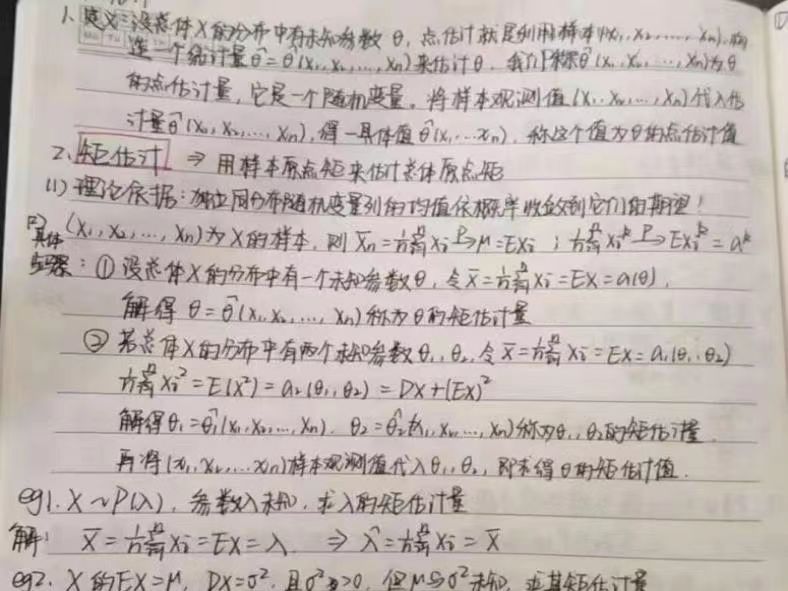 1、定义:设总体X的分布中有未知参数 θ, 点估计就是利用样本(x₁, x₂, ..., xₙ), 构
造一个统计量θ̂=θ̂(x₁, x₂, ..., xₙ)来估计θ. 我们称θ̂(x₁, x₂, ..., xₙ)为θ
的点估计量, 它是一个随机变量. 将样本观测值(x₁, x₂, ..., xₙ)代入估
计量θ̂(x₁, x₂, ..., xₙ), 得一具体值θ̂(x₁...xₙ), 称这个值为θ的点估计值
2、矩估计 ⇒ 用样本原点矩来估计总体原点矩
(1) 理论依据:独立同分布随机变量列的均值依概率收敛到它们的期望!
(x₁, x₂, ..., xₙ)为X的样本, 则 X̄ₙ=1/n Σᵢ₌₁ⁿ Xᵢ →ᴾ μ=EXᵢ ; 1/n Σᵢ₌₁ⁿ Xᵢᵏ →ᴾ EXᵢᵏ=aᵏ
具体
步骤:① 设总体X的分布中有一个未知参数θ, 令 X̄=1/n Σᵢ₌₁ⁿ Xᵢ=EX=a(θ),
解得 θ=θ̂(x₁, x₂, ..., xₙ)称为θ的矩估计量
② 若总体X的分布中有两个未知参数θ₁, θ₂, 令 X̄=1/n Σᵢ₌₁ⁿ Xᵢ=EX=a₁(θ₁, θ₂)
1/n Σᵢ₌₁ⁿ Xᵢ²=E(X²)=a₂(θ₁, θ₂)=DX+(EX)²
解得θ₁=θ̂₁(x₁, x₂, ..., xₙ). θ₂=θ̂₂(x₁, x₂, ..., xₙ)称为θ₁, θ₂的矩估计量.
再将(x₁, x₂, ... xₙ)样本观测值代入θ₁, θ₂, 即求得θ的矩估计值.
eg1. X~P(λ), 参数λ未知, 求λ的矩估计量
解: X̄=1/n Σᵢ₌₁ⁿ Xᵢ=EX=λ. ⇒ λ̂=1/n Σᵢ₌₁ⁿ Xᵢ=X̄
eg2. X的EX=μ, DX=σ², 且σ²>0, 但μ与σ²未知, 求其矩估计量